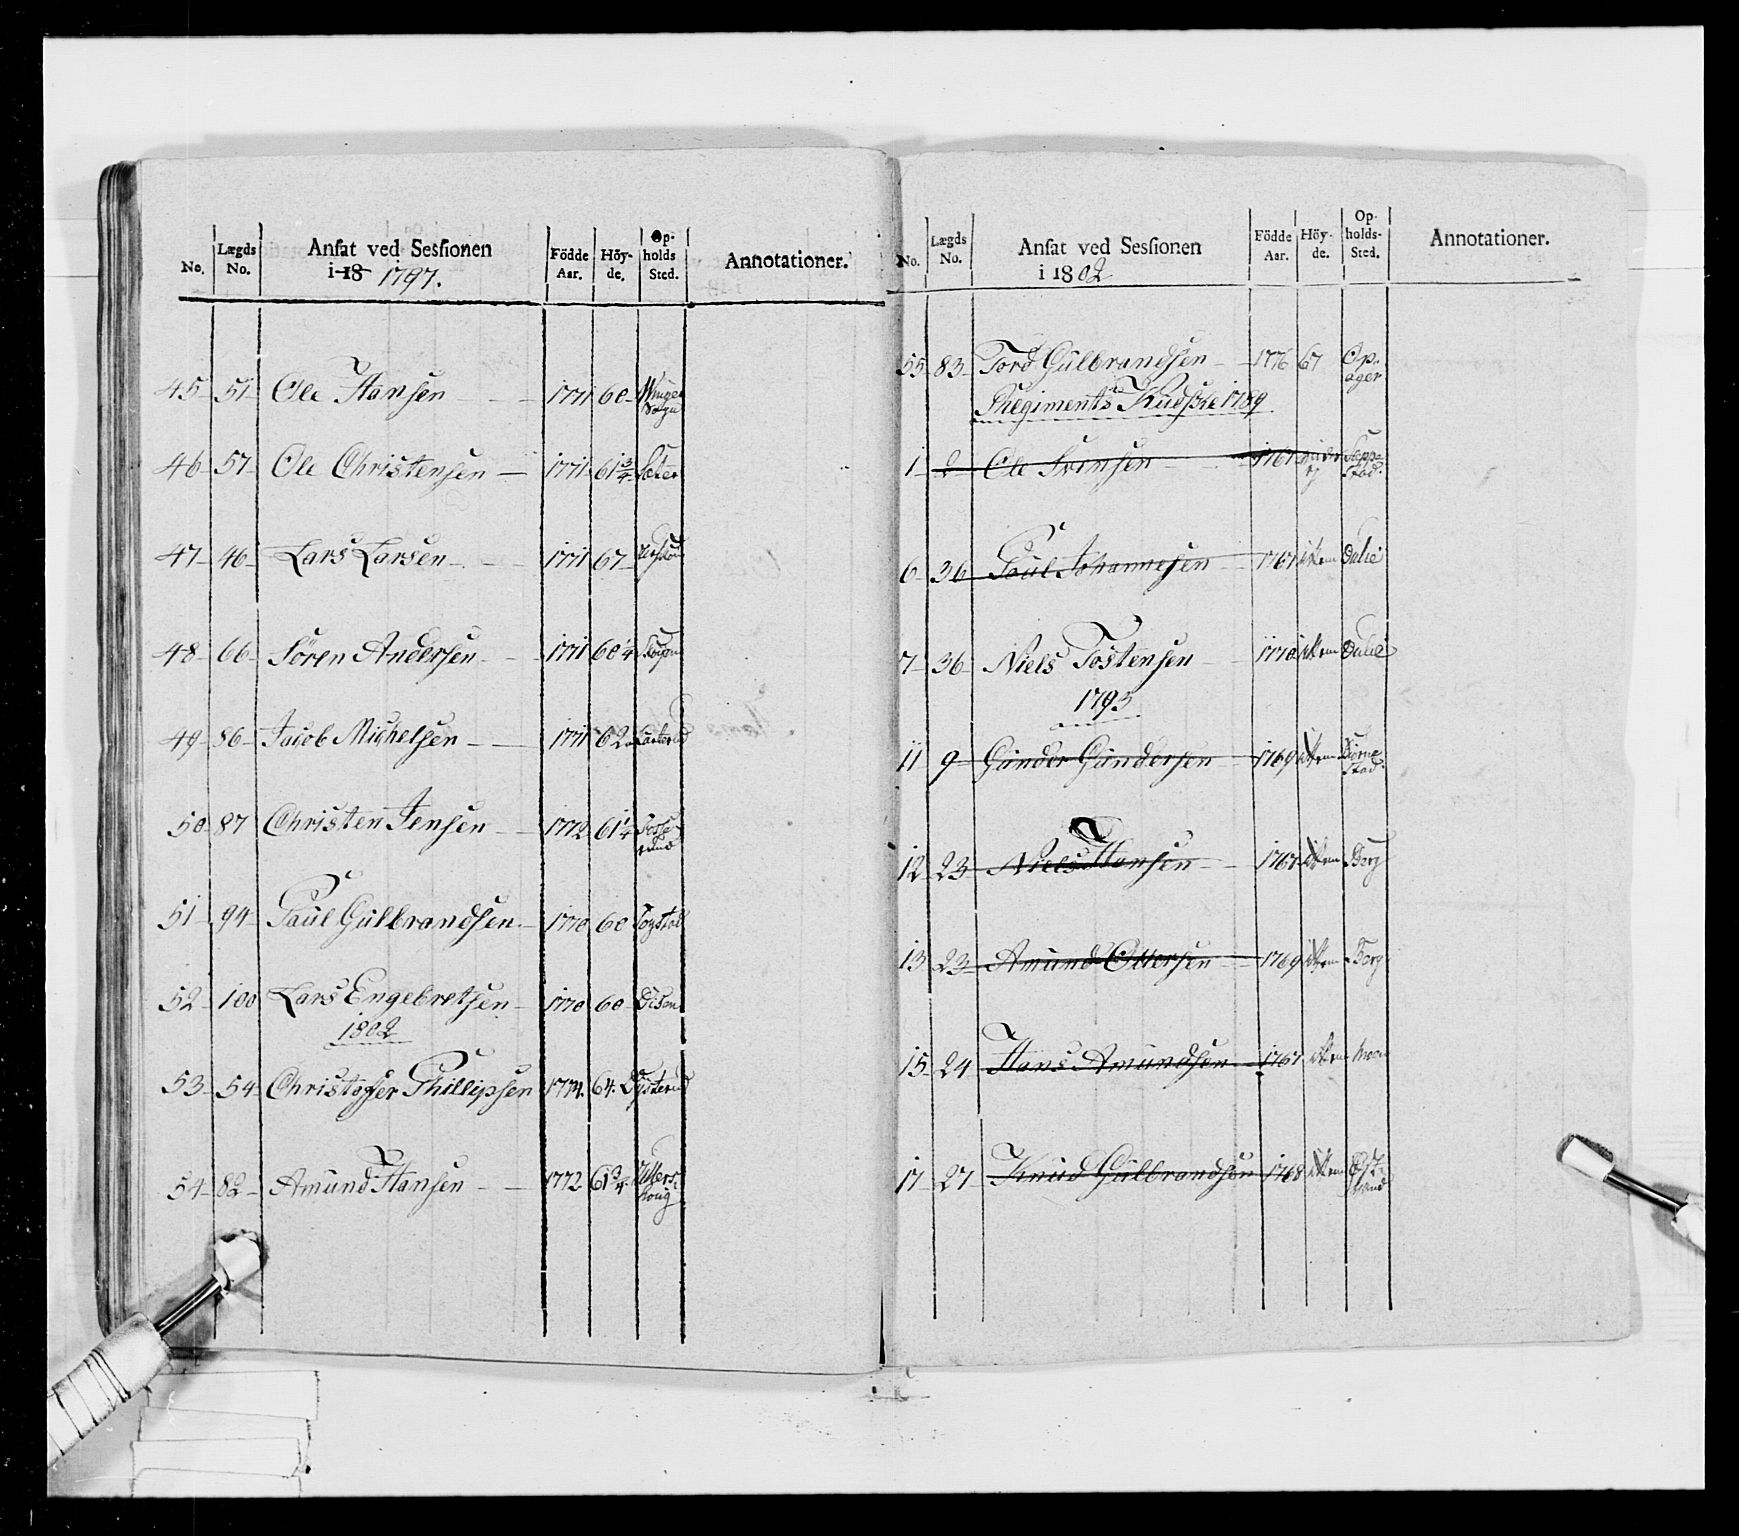 No. Lægds No. Ansat ved Sessionen i 18 1797. Födde Aar. Höyde. Opholds Sted. Annotationer.
45 51 Ole Hansen 1771 60
46 57 Ole Christensen 1771 61 3/4 Sæter
47 46 Lars Larsen 1771 67
48 66 Sören Andersen 1771 60 1/4 Skougen
49 86 Jacob Michelsen 1771 62
50 87 Christen Jensen 1772 61 1/4
51 94 Paul Gulbrandsen 1770 60
52 100 Lars Engebretsen 1770 60 Disen
1802
53 54 Christoffer Phillipsen 1774. 64.
54 82 Amund Hansen 1772 61 3/4
No. Lægds No. Ansat ved Sessionen i 1802 Födde Aar. Höyde. Opholds-Sted. Annotationer.
55 83 Tord Gulbrandsen 1776 67 Opager
Regiments 1789
1 2 Ole Svensen 1767
6 36 Paul Johannesen 1767 Dulie
7 36 Niels Tostensen 1770 Dulie
1793
11 9 Gunder Gundersen 1769
12 23 Niels Hansen 1767 Berg
13 23 Amund Ottersen 1769 Berg
15 24 Hans Amundsen 1767 Moen
17 27 Knud Gulbrandsen 1768